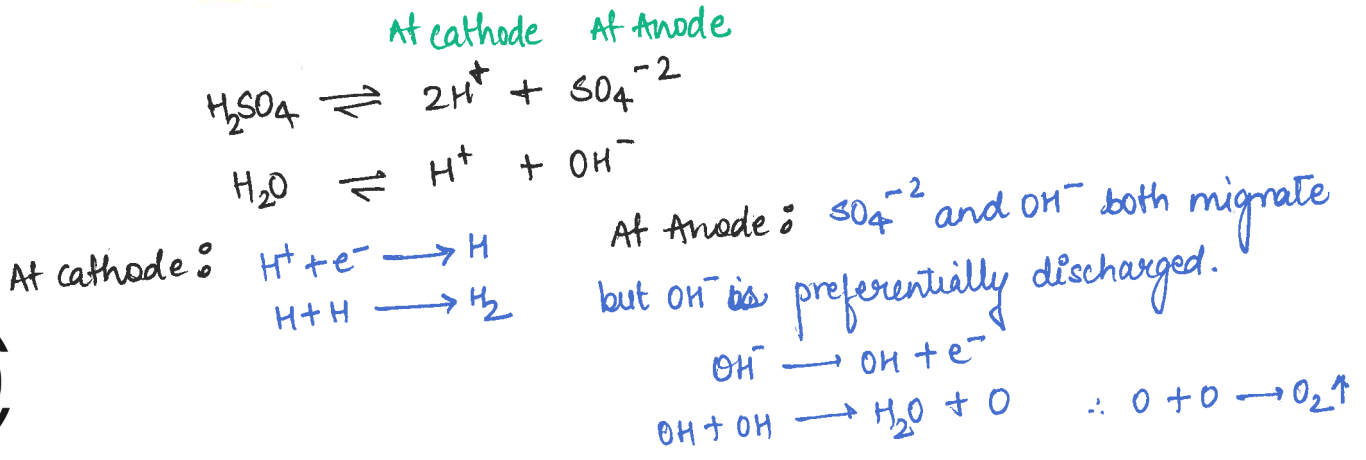 At cathode At Anode
H₂SO₄ ⇌ 2H⁺ + SO₄⁻²
H₂O ⇌ H⁺ + OH⁻
At cathode : H⁺ + e⁻ ⟶ H
H + H ⟶ H₂
At Anode : SO₄⁻² and OH⁻ both migrate
but OH⁻ is preferentially discharged.
OH⁻ ⟶ OH + e⁻
OH + OH ⟶ H₂O + O ∴ O + O ⟶ O₂↑